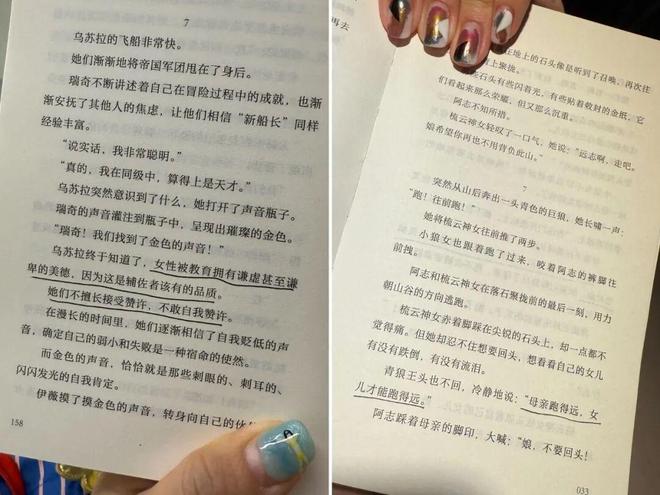 7
乌苏拉的飞船非常快。
她们渐渐地将帝国军团甩在了身后。
瑞奇不断讲述着自己在冒险过程中的成就，也渐
渐安抚了其他人的焦虑，让他们相信“新船长”同样
经验丰富。
“说实话，我非常聪明。”
“真的，我在同级中，算得上是天才。”
乌苏拉突然意识到了什么，她打开了声音瓶子。
瑞奇的声音灌注到瓶子中，呈现出璀璨的金色。
“瑞奇！我们找到了金色的声音！”
乌苏拉终于知道了，女性被教育拥有谦虚甚至谦
卑的美德，因为这是辅佐者该有的品质。
她们不擅长接受赞许，不敢自我赞许。
在漫长的时间里，她们逐渐相信了自我贬低的声
音，确定自己的弱小和失败是一种宿命的使然。
而金色的声音，恰恰就是那些刺眼的、刺耳的、
闪闪发光的自我肯定。
伊薇摸了摸金色的声音，转身向自己的伙
158
再去
在地上的石头像是听到了召唤，再次往
上聚拢。
石头有些闪着光，有些贴着敕封的金纸，它
们看起来那么荣耀，但又那么沉重。
阿志不知所措。
梳云神女轻叹了一口气，她说：“远志啊，走吧。
娘希望你再也不用背负此山。”
7
突然从山后奔出一头青色的巨狼，她长啸一声：
“跑！往前跑！”
她将梳云神女往前推了两步。
小狼女也跟着跑了过来，咬着阿志的裤脚往
前拽。
阿志和梳云神女在落石聚拢前的最后一刻，用力
朝山谷的方向逃跑。
梳云神女赤着脚踩在尖锐的石头上，却一点都不
觉得痛。但她却忍不住想要回头，想看看自己的女儿
有没有跌倒，有没有流泪。
青狼王头也不回，冷静地说：“母亲跑得远，女
儿才能跑得远。”
阿志踩着母亲的脚印，大喊：“娘，不要回头！
033